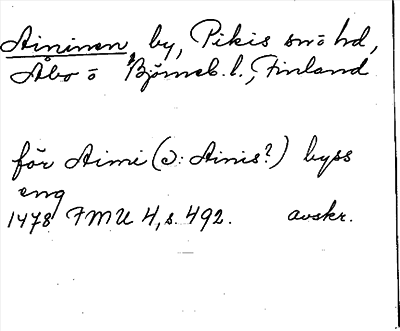 Aininen, by, Pikis sn o hd,
Åbo o Björneb. l., Finland
för Aimi (ɔ: Ainis?) byss
eng
1478 FMU 4, s. 492. avskr.